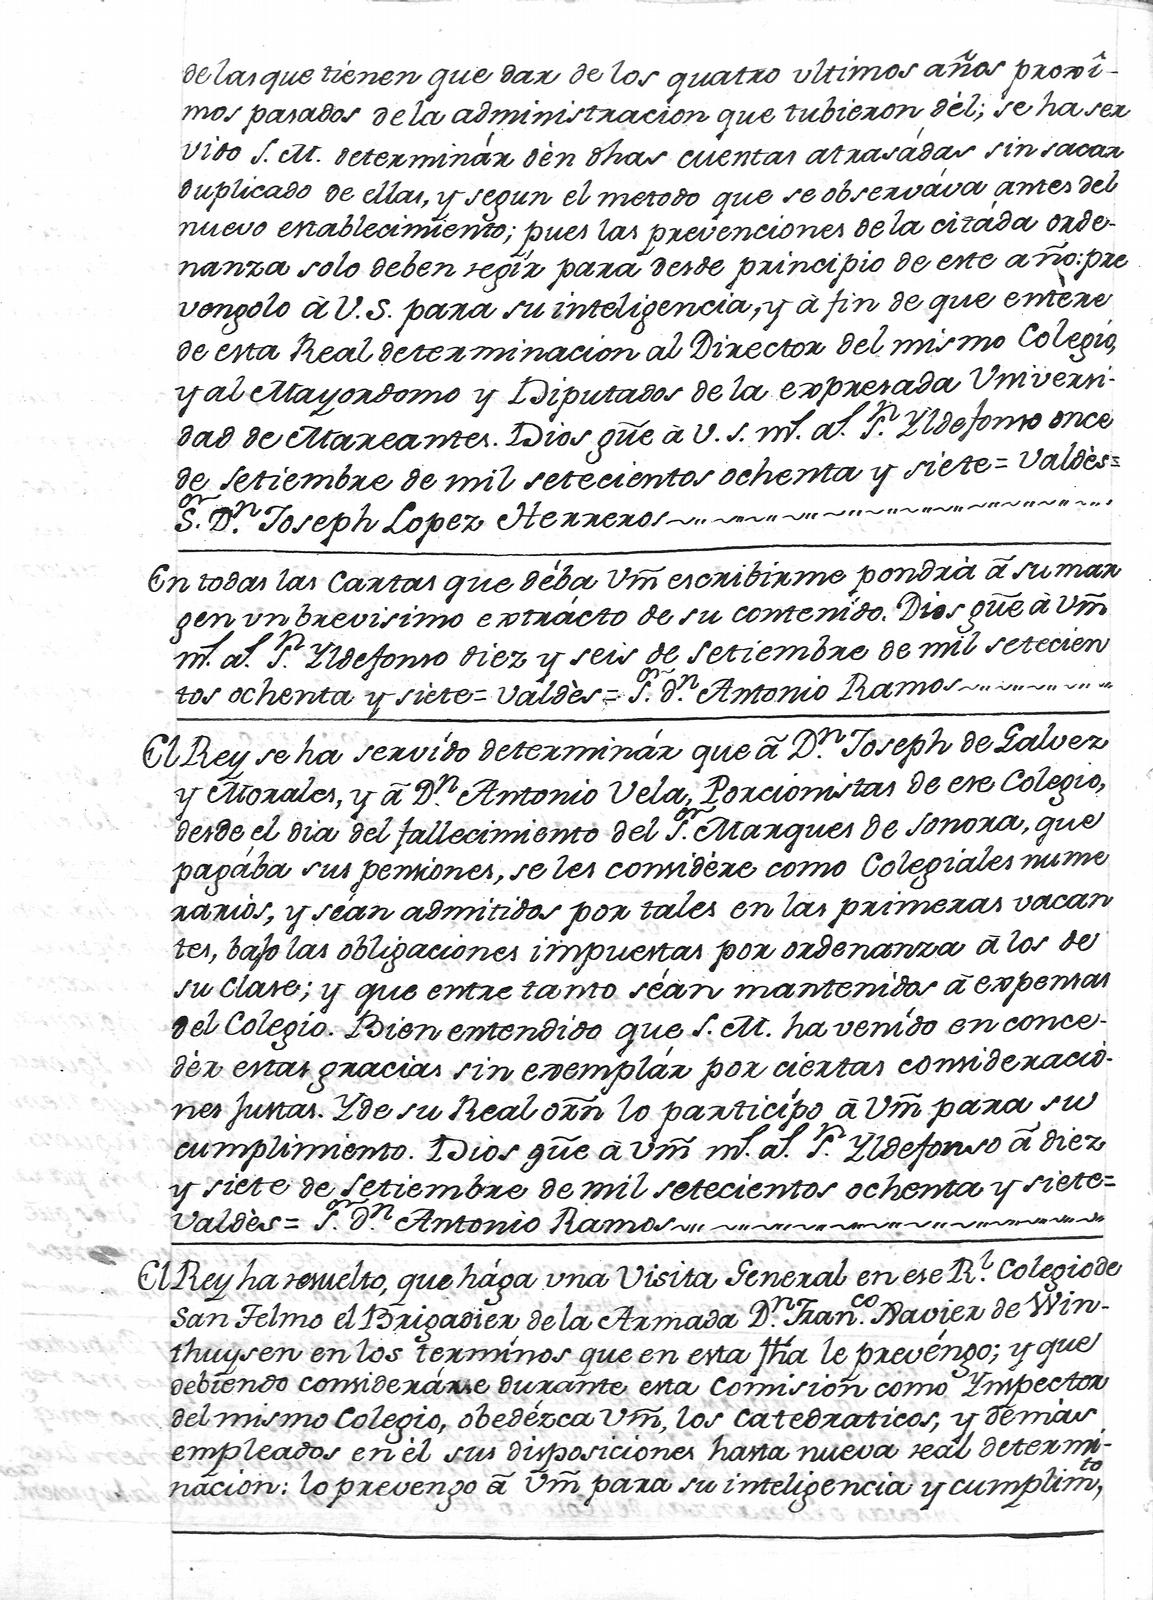 de las que tienen que dar de los quatro vltimos años proxî-
mos pasados de la administracion que tubieron dèl; se ha ser
vido S. M. determinár dèn dhas cuentas atrasádas sin sacar
duplicado de ellas, y segun el metodo que se observáva antes del
nuevo establecimiento; pues las prevenciones de la citáda orde-
nanza solo deben regír para desde principio de este año: pre
vengolo à V. S. para su inteligencia, y à fin de que entère
de esta Real determinacion al Director del mismo Colegio,
y al Mayordomo y Diputados de la expresada Universi-
dad de Mareantes. Dios gũe à V. S. mˢ. aˢ. Sⁿ. Yldefonso once
de Setiembre de mil setecientos ochenta y siete = Valdès =
Sᵒʳ. Dⁿ. Joseph Lopez Herreros
En todas las Cartas que déba Vm̃ escribirme pondrà ã su mar
gen vn brevisimo extrácto de su contenído. Dios gũe à Vm̃
mˢ. aˢ. Sⁿ. Yldefonso diez y seis de Setiembre de mil setecien
tos ochenta y siete = Valdès = Sᵒʳ. dⁿ. Antonio Ramos
El Rey se ha servído determinár que ã Dⁿ. Joseph de Galvez
y Morales, y ã Dⁿ. Antonio Vela, Porcionistas de ese Colegio,
desde el dia del fallecimiento del Sᵒʳ. Marques de Sonora, que
pagába sus pensiones, se les considère como Colegiales nume
rarios, y séan admitidos por tales en las primeras vacan
tes, bajo las obligaciones impuestas por ordenanza à los de
su Clase; y que entre tanto séan mantenidos ã expensas
del Colegio. Bien entendido que S. M. ha venído en conce-
dér estas gracias sin exemplár por ciertas consideració-
nes justas. Y de su Real orñ lo partícipo à Vm̃ para su
cumplimiento. Dios gũe à Vm̃ mˢ. aˢ. Sⁿ. Yldefonso ã diez
y siete de Setiembre de mil setecientos ochenta y siete =
Valdès = Sᵒʳ. Dⁿ. Antonio Ramos
El Rey ha resuelto, que hága vna Visita General en ese Rˡ. Colegio de
San Telmo el Brigadier de la Armada Dⁿ. Franᶜᵒ. Xavier de Win-
thuysen en los termínos que en esta fħa le prevéngo; y que
debiendo considerárse duránte esta Comisioñ como Ynspector
del mismo Colegio, obedézca Vm̃, los Catedraticos, y demàs
empleados en él sus disposiciones hasta nueva reál determi-
nacion: lo prevengo ã Vm̃ para su inteligencia y cumplimᵗᵒ,